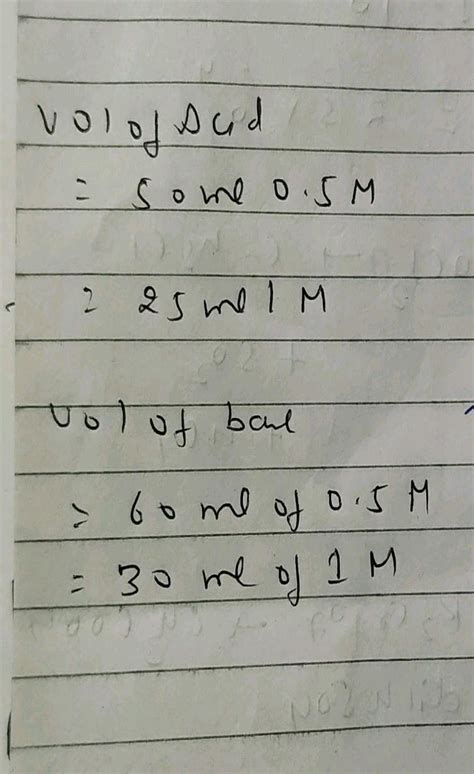 Vol of Acid
= 50 ml 0.5 M
= 25 ml 1 M
Vol of base
= 60 ml of 0.5 M
= 30 ml of 1 M